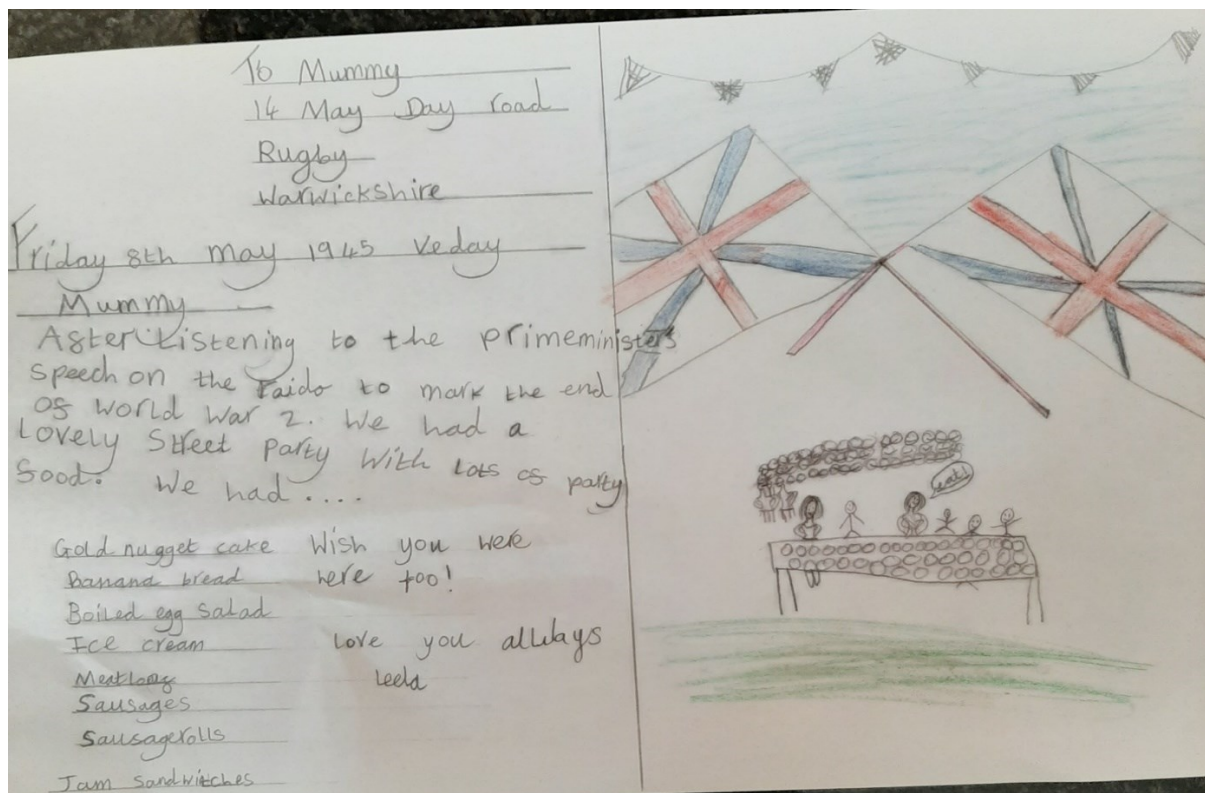 To Mummy
14 May Day road
Rugby
Warwickshire
Friday 8th may 1945 Veday
Mummy
After Listening to the primeministers
speech on the raido to mark the end
of world war 2. We had a
Lovely Street party with Lots of party
food. We had ....
Gold nugget cake
Banana bread
Boiled egg salad
Ice cream
Meatloaf
Sausages
Sausagerolls
Jam sandwitches
Wish you were
here too!
Love you allways
Leela
eat!